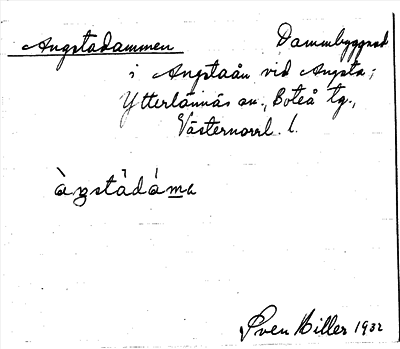 Angstadammen Dammbyggnad
i Angstaån vid Angsta;
Ytterlännäs sn., Boteå tg.,
Västernorrl. l.
àŋstàdáma
Sven Hiller 1932